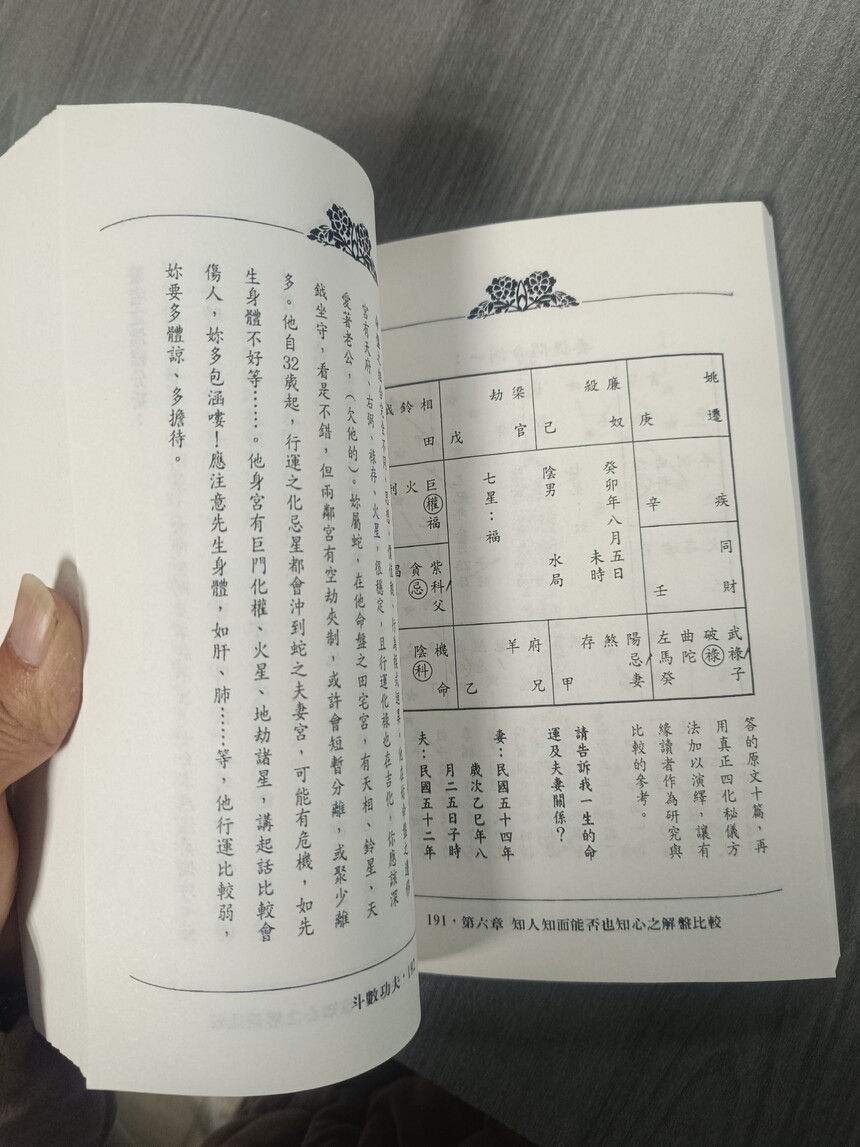 姚
遷
庚
廉
殺
奴
己
梁
劫
官
戊
相
鈴
田
疾
辛
癸卯年八月五日
未時
陰男
水局
七星：福
巨權福
火
同
財
壬
紫科父
貪忌
武祿子
破祿
曲陀
左馬癸
陽忌妻
煞
存
甲
府兄
羊
乙
機命
陰科
答的原文十篇，再
用真正四化秘儀方
法加以演繹，讓有
緣讀者作為研究與
比較的參考。
請告訴我一生的命
運及夫妻關係？
妻：民國五十四年
歲次乙巳年八
月二五日子時
夫：民國五十二年
191·第六章 知人知面能否也知心之解盤比較
完全不同，思想、價值觀、行為模式迥異，他在妳命盤之遷移
宮有天府、右弼、祿存、火星，很穩定，且行運化祿也在吉化，你應該深
愛著老公，（欠他的）。妳屬蛇，在他命盤之田宅宮，有天相、鈴星、天
鉞坐守，看是不錯，但兩鄰宮有空劫夾制，或許會短暫分離，或聚少離
多。他自32歲起，行運之化忌星都會沖到蛇之夫妻宮，可能有危機，如先
生身體不好等……。他身宮有巨門化權、火星、地劫諸星，講起話比較會
傷人，妳多包涵嘍！應注意先生身體，如肝、肺……等，他行運比較弱，
妳要多體諒、多擔待。
斗數功夫·192